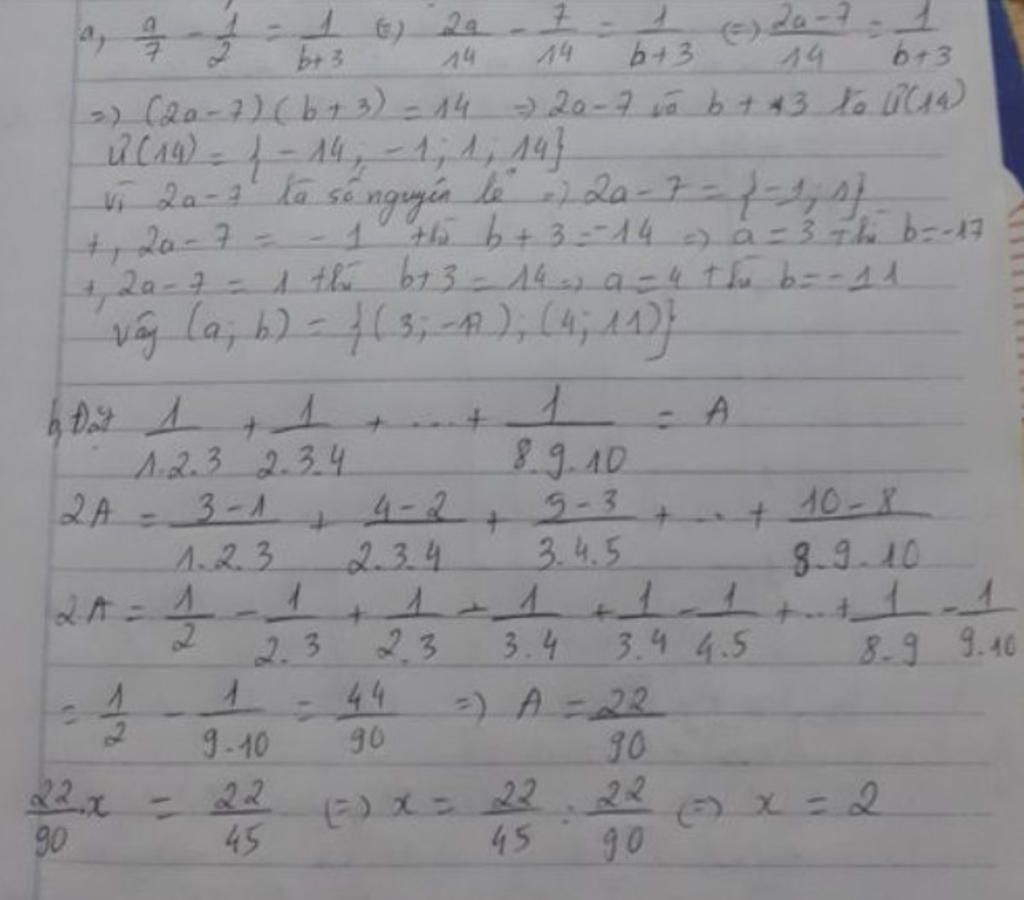 a, a/7 - 1/2 = 1/(b+3) (=) 2a/14 - 7/14 = 1/(b+3) (=) (2a-7)/14 = 1/(b+3)
=) (2a-7)(b+3) = 14 => 2a-7 và b+3 là Ư(14)
Ư(14) = {-14; -1; 1; 14}
vì 2a-7 là số nguyên lẻ => 2a-7 = {-1; 1}
+, 2a-7 = -1 thì b+3 = -14 => a = 3 thì b = -17
+, 2a-7 = 1 thì b+3 = 14 => a = 4 thì b = -11
vậy (a; b) = {(3; -17); (4; 11)}
b, Đặt 1/1.2.3 + 1/2.3.4 + ... + 1/8.9.10 = A
2A = (3-1)/1.2.3 + (4-2)/2.3.4 + (5-3)/3.4.5 + ... + (10-8)/8.9.10
2A = 1/2 - 1/2.3 + 1/2.3 - 1/3.4 + 1/3.4 - 1/4.5 + ... + 1/8.9 - 1/9.10
= 1/2 - 1/9.10 = 44/90 =) A = 22/90
22/90 . x = 22/45 (=) x = 22/45 : 22/90 (=) x = 2